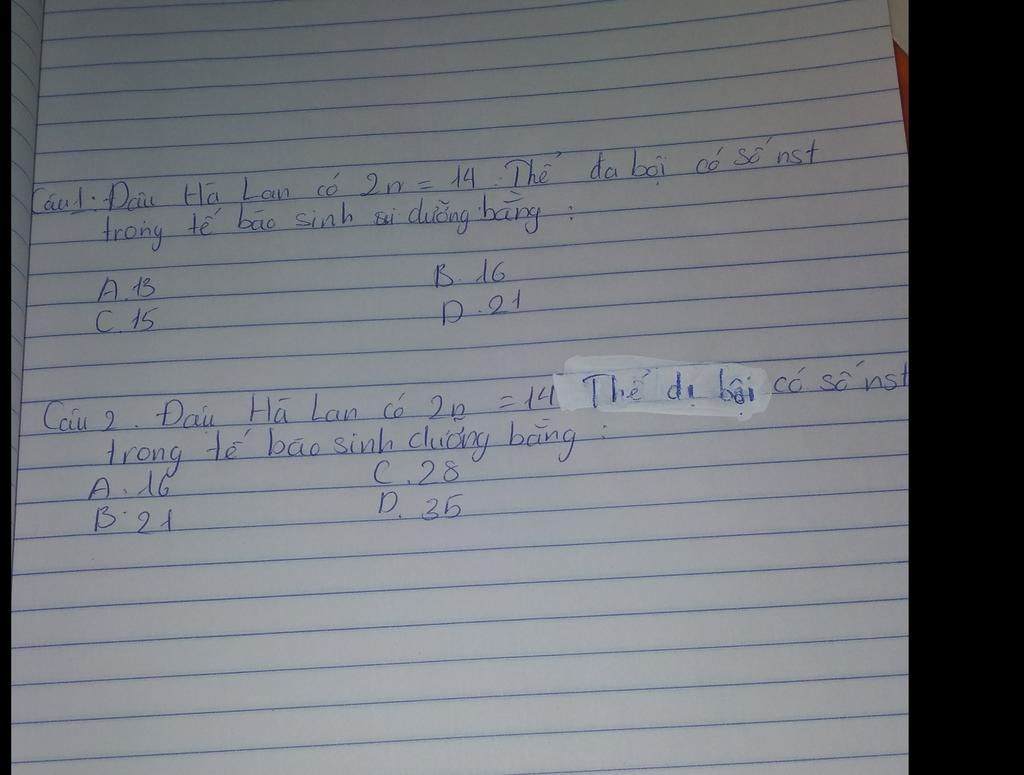 Câu 1. Đậu Hà Lan có 2n = 14. Thể đa bội có số nst
trong tế bào sinh dưỡng bằng :
A. 13 B. 16
C. 15 D. 21
Câu 2. Đậu Hà Lan có 2n = 14 Thể dị bội có số nst
trong tế bào sinh dưỡng bằng :
A. 16 C. 28
B. 21 D. 35